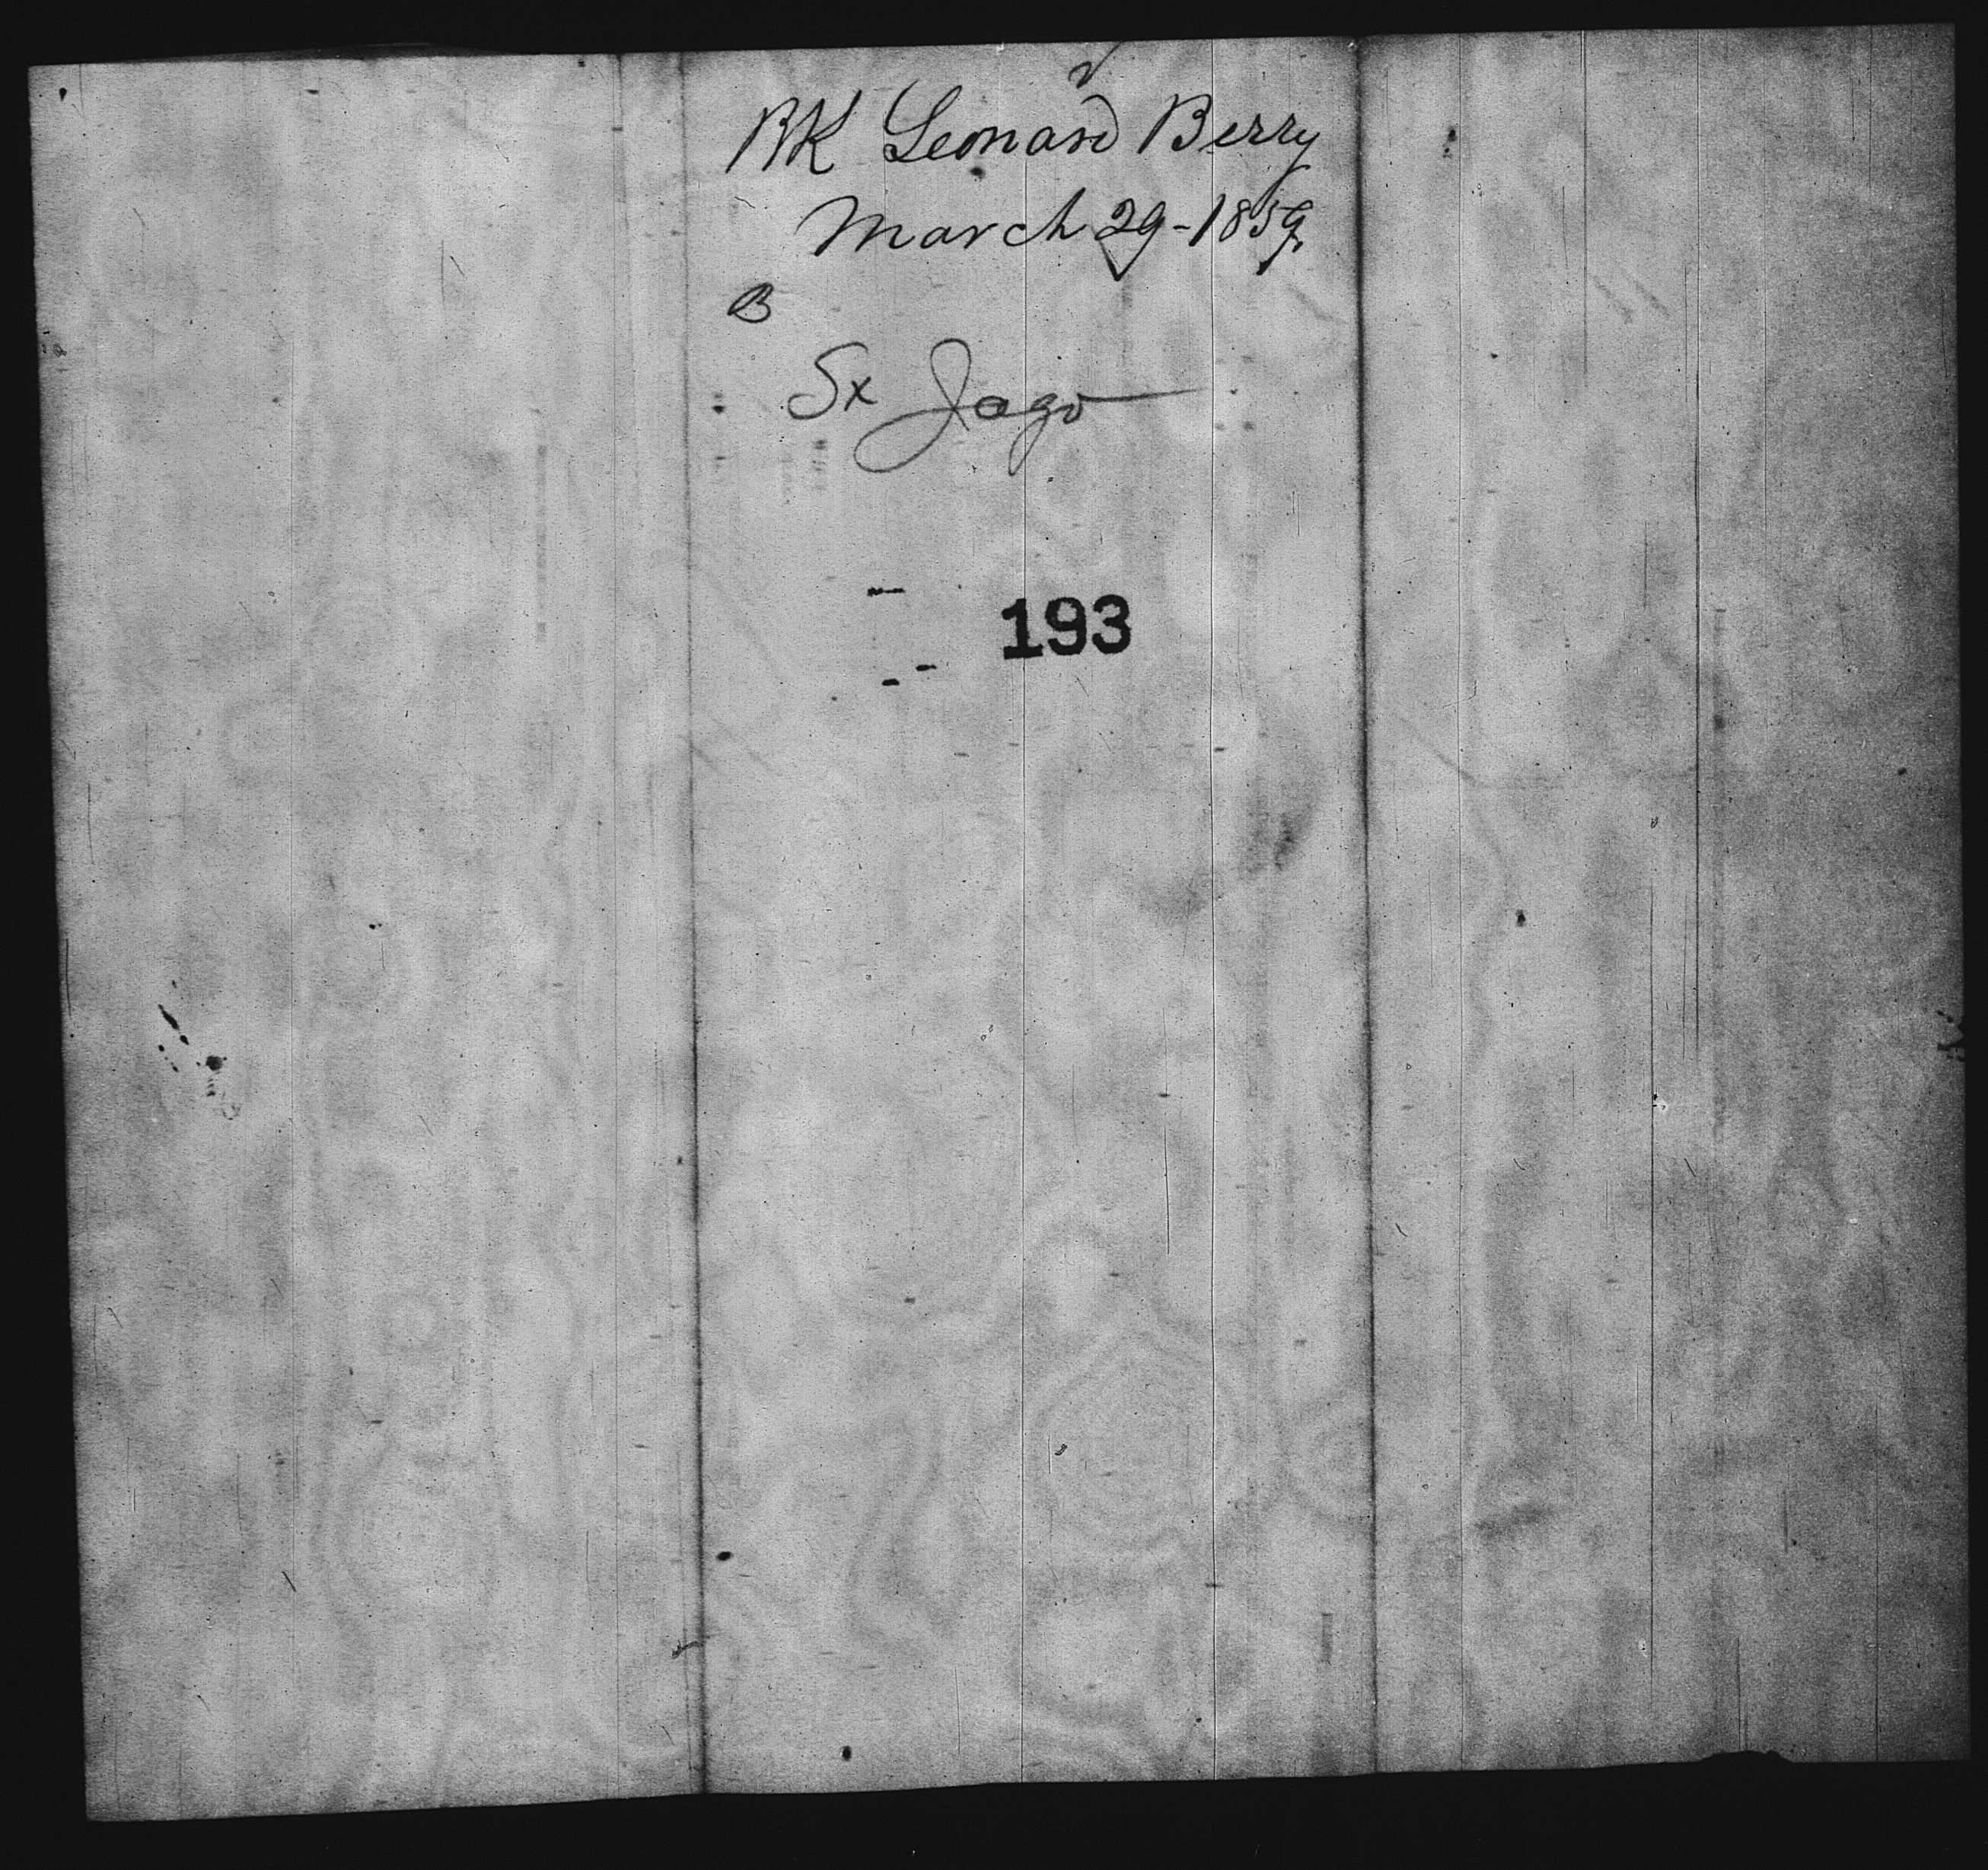 BK Leonard Berry
March 29-1859.
B
Sx Jago
193